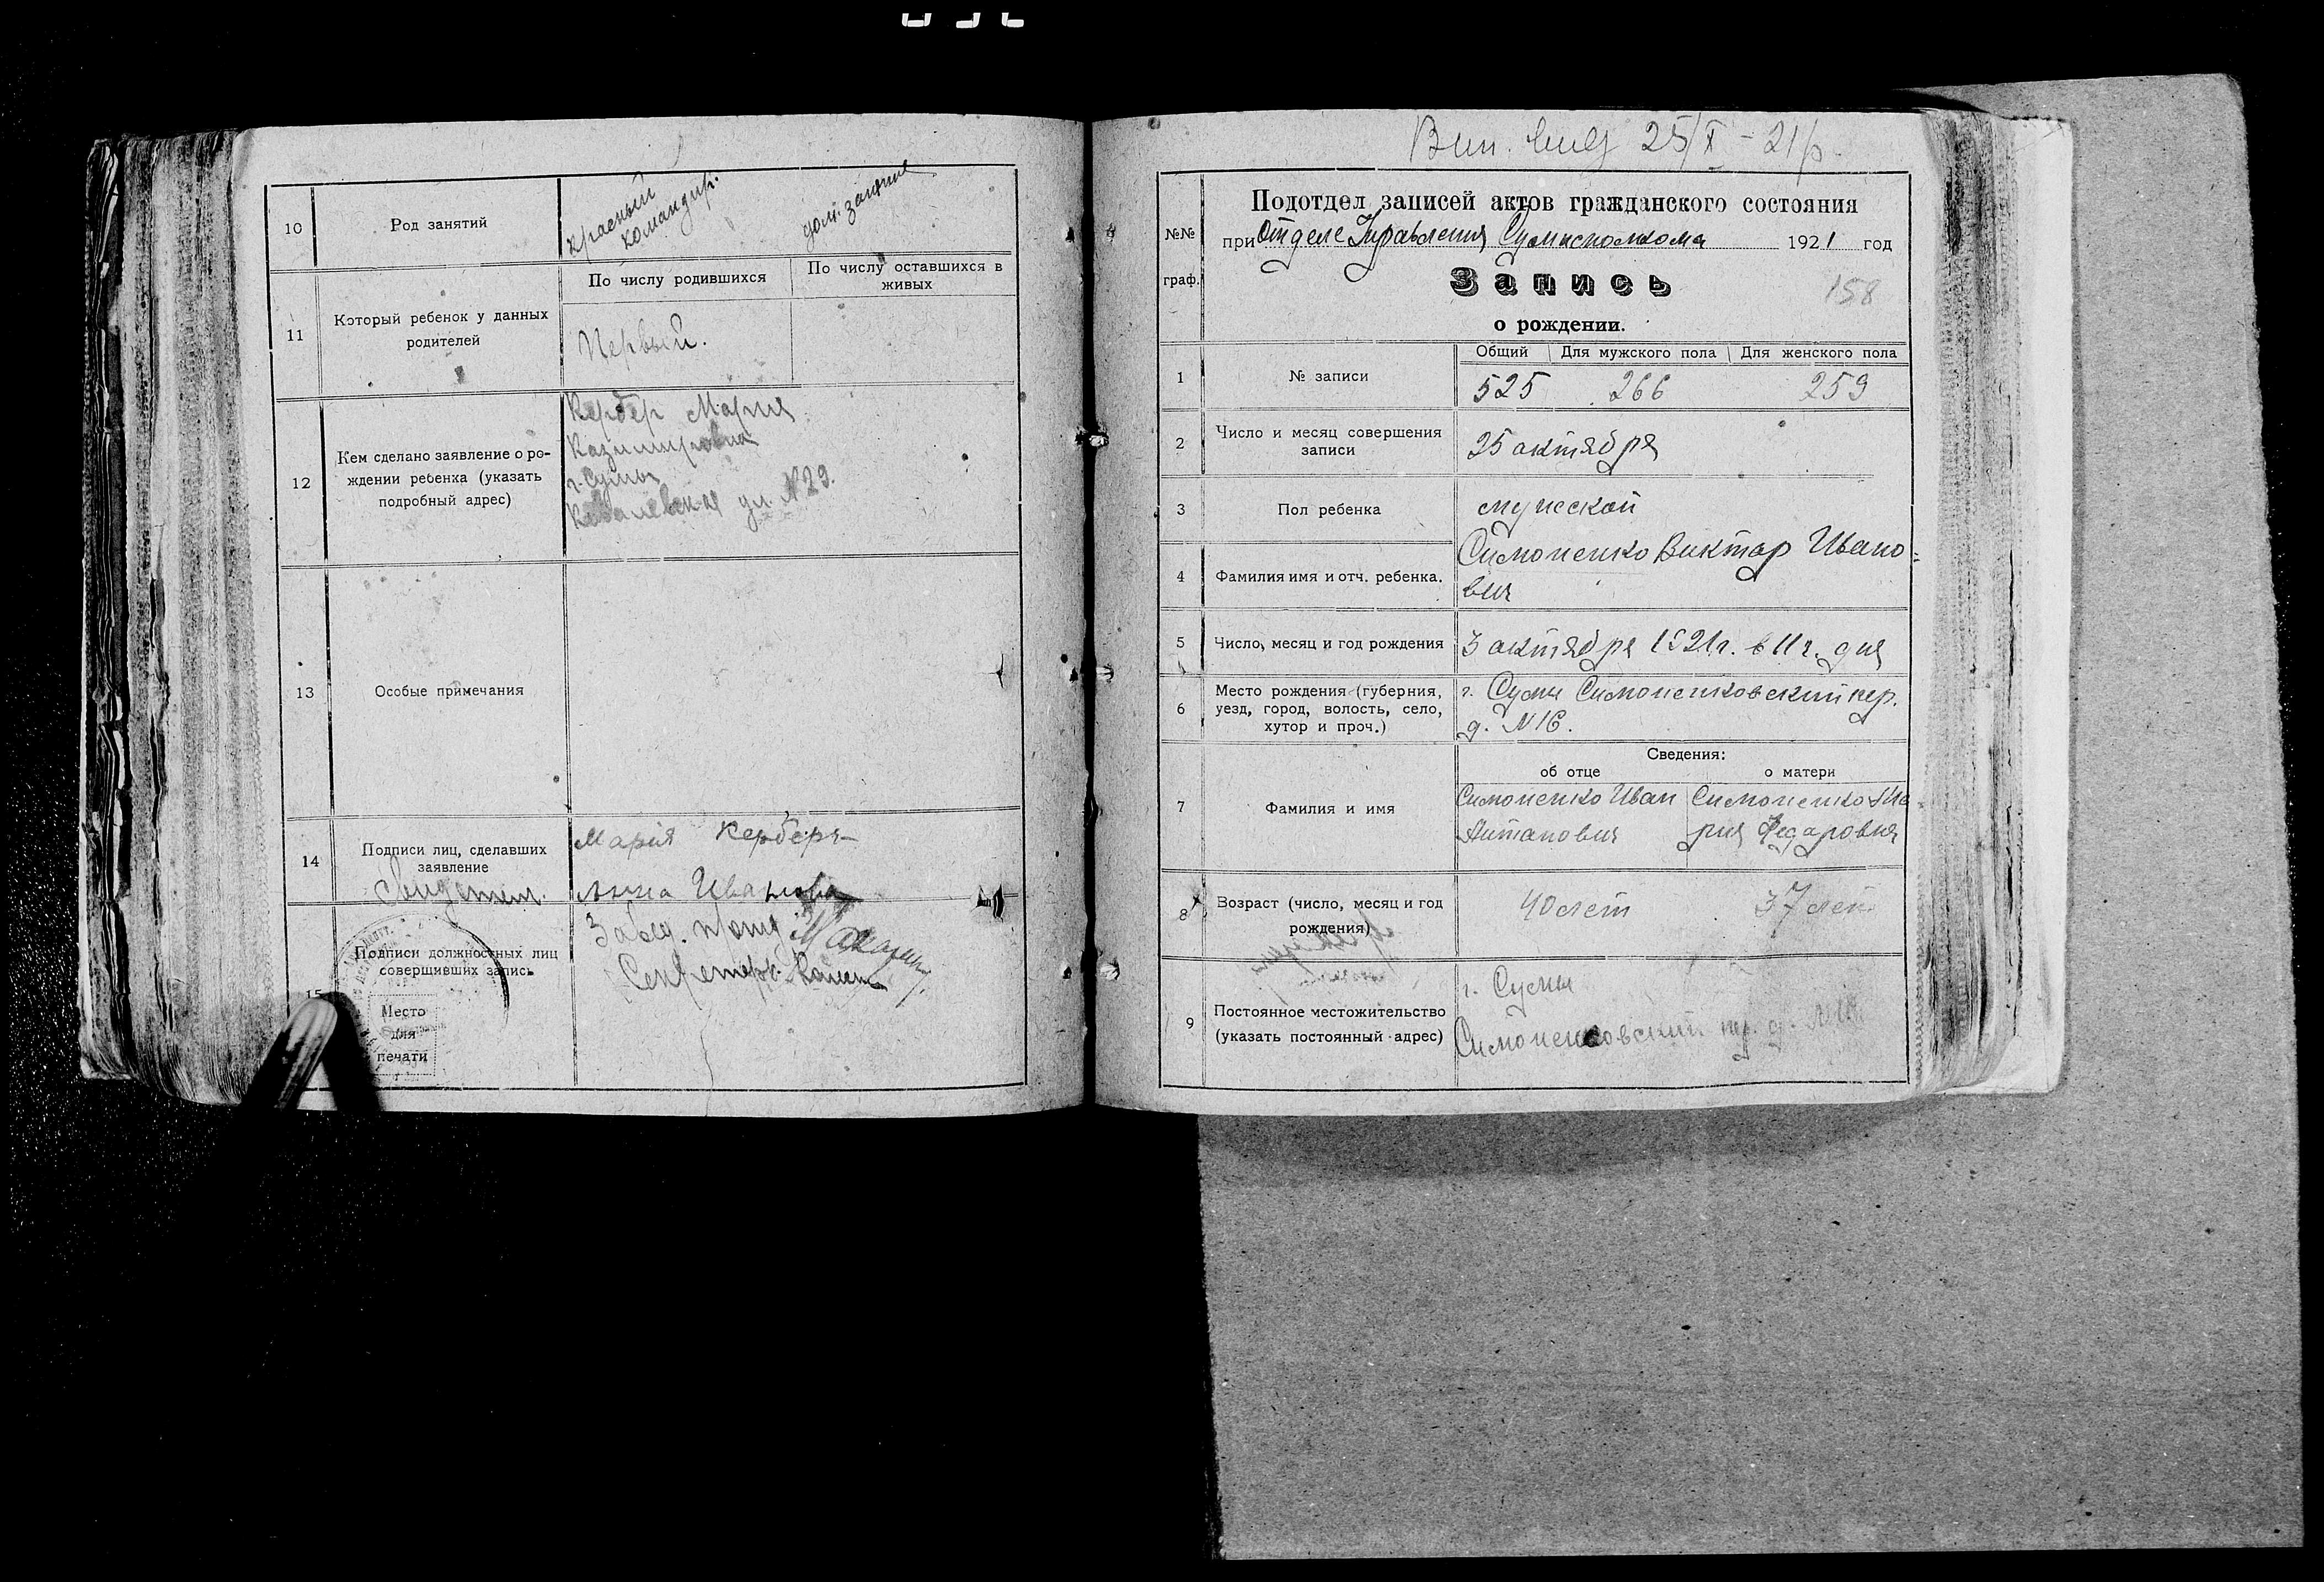 10
Род занятий
красный
командир.
дом. занятие
11
Который ребенок у данных
родителей
По числу родившихся
По числу оставшихся в
живых
Первый.
12
Кем сделано заявление о ро-
ждении ребенка (указать
подробный адрес)
Кербер Мария
Казимировна
г. Сумы
ул. №29.
13
Особые примечания
14
Подписи лиц, сделавших
заявление
Марія Керберъ
Анна Иванова
15
Подписи должностных лиц
совершивших запись
Завед.
Секретарь
Место
для
печати
25/X - 21 р.
№№
граф.
Подотдел записей актов гражданского состояния
при Отделе Управления Сумисполкома 1921 год
Запись
158
о рождении.
1
№ записи
Общий Для мужского пола Для женского пола
525 266 259
2
Число и месяц совершения
записи
25 актября
3
Пол ребенка
мужеской
4
Фамилия имя и отч. ребенка.
Симоненко Виктар Ивано=
вич
5
Число, месяц и год рождения
3 актября 1921г. в 11 ч. дня
6
Место рождения (губерния,
уезд, город, волость, село,
хутор и проч.)
г. Сумы Симоненковский пер.
д. №16.
Сведения:
об отце
о матери
7
Фамилия и имя
Симоненко Иван
Антанович
Симоненко Ма
рия Федаровна
8
Возраст (число, месяц и год
рождения)
40 лет
37 лет
9
Постоянное местожительство
(указать постоянный адрес)
г. Сумы
Симоненковский пер. д. №16